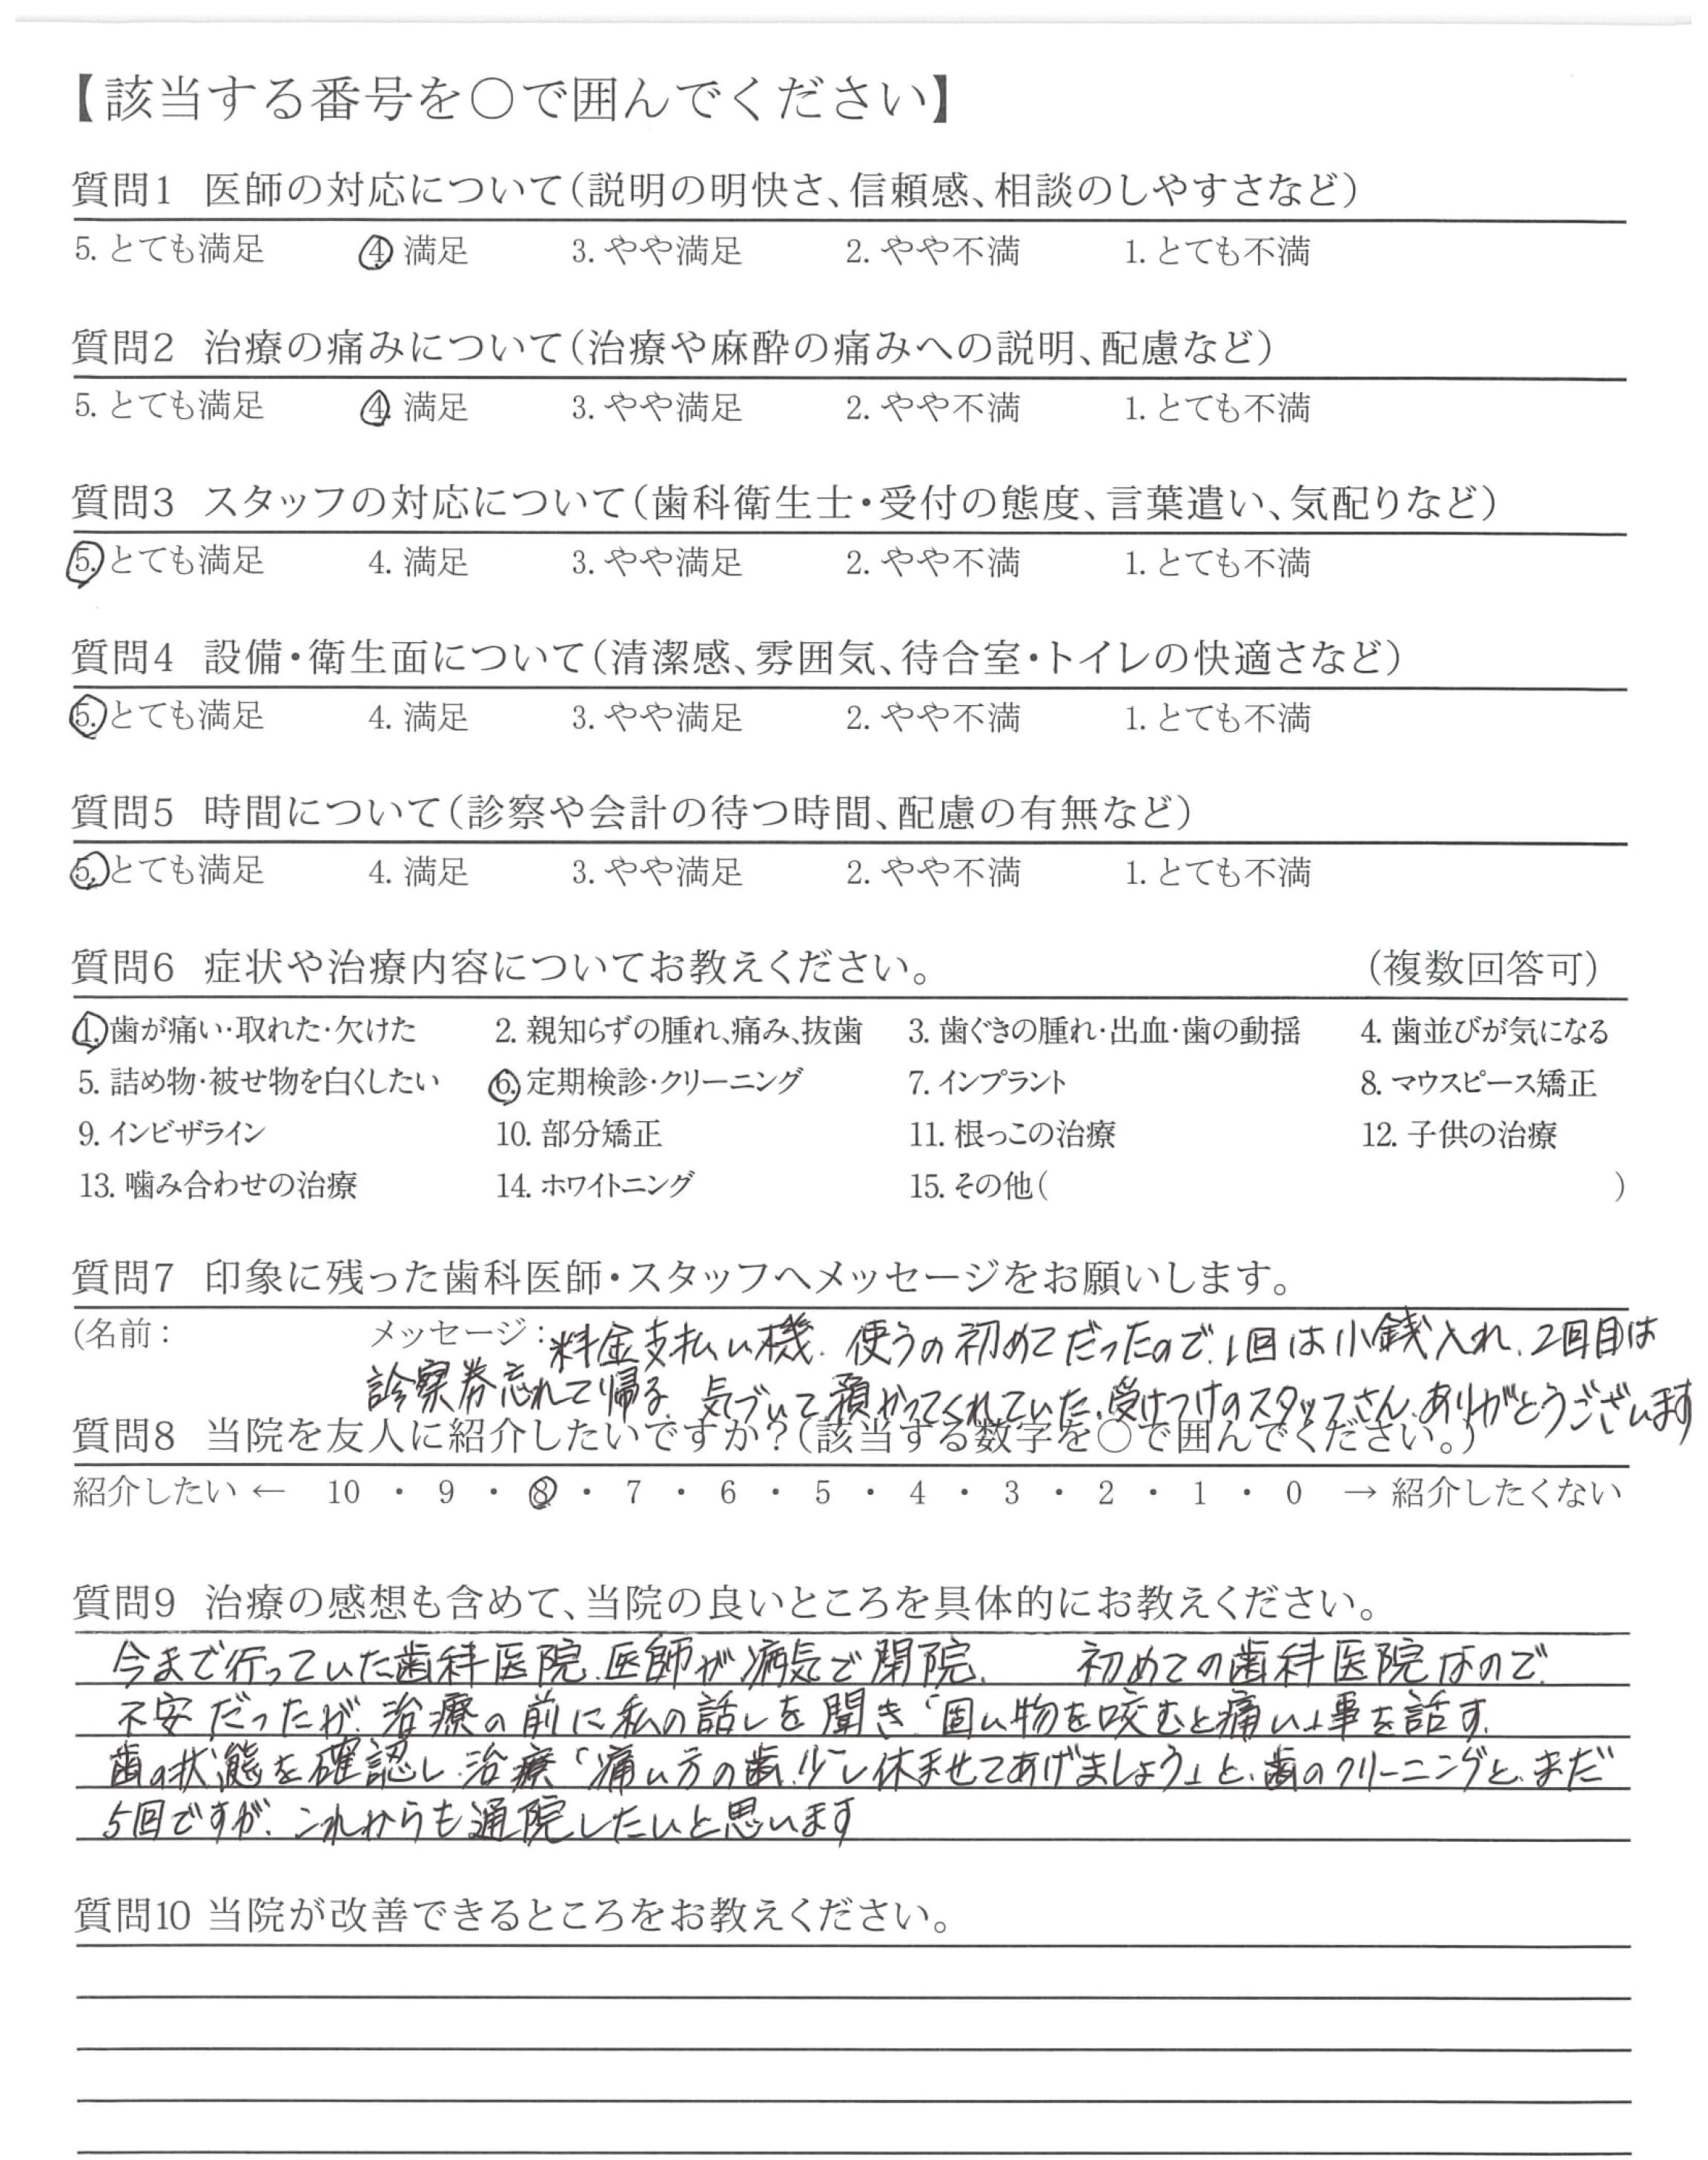 【該当する番号を○で囲んでください】
質問1 医師の対応について(説明の明快さ、信頼感、相談のしやすさなど)
5. とても満足 4. 満足 3. やや満足 2. やや不満 1. とても不満
質問2 治療の痛みについて(治療や麻酔の痛みへの説明、配慮など)
5. とても満足 4. 満足 3. やや満足 2. やや不満 1. とても不満
質問3 スタッフの対応について(歯科衛生士・受付の態度、言葉遣い、気配りなど)
5. とても満足 4. 満足 3. やや満足 2. やや不満 1. とても不満
質問4 設備・衛生面について(清潔感、雰囲気、待合室・トイレの快適さなど)
5. とても満足 4. 満足 3. やや満足 2. やや不満 1. とても不満
質問5 時間について(診察や会計の待つ時間、配慮の有無など)
5. とても満足 4. 満足 3. やや満足 2. やや不満 1. とても不満
質問6 症状や治療内容についてお教えください。 (複数回答可)
1. 歯が痛い・取れた・欠けた 2. 親知らずの腫れ、痛み、抜歯 3. 歯ぐきの腫れ・出血・歯の動揺 4. 歯並びが気になる
5. 詰め物・被せ物を白くしたい 6. 定期検診・クリーニング 7. インプラント 8. マウスピース矯正
9. インビザライン 10. 部分矯正 11. 根っこの治療 12. 子供の治療
13. 噛み合わせの治療 14. ホワイトニング 15. その他( )
質問7 印象に残った歯科医師・スタッフへメッセージをお願いします。
(名前: メッセージ:料金支払い機、使うの初めてだったので、1回は小銭入れ、2回目は
診察券忘れて帰る、気づいて預かってくれていた、受けつけのスタッフさん、ありがとうございます
質問8 当院を友人に紹介したいですか?(該当する数字を○で囲んでください。)
紹介したい ← 10 ・ 9 ・ 8 ・ 7 ・ 6 ・ 5 ・ 4 ・ 3 ・ 2 ・ 1 ・ 0 → 紹介したくない
質問9 治療の感想も含めて、当院の良いところを具体的にお教えください。
今まで行っていた歯科医院、医師が病気で閉院、 初めての歯科医院なので、
不安だったが、治療の前に私の話しを聞き「固い物を咬むと痛い」事を話す、
歯の状態を確認し、治療「痛い方の歯、少し休ませてあげましょう」と、歯のクリーニングと、まだ
5回ですが、これからも通院したいと思います
質問10 当院が改善できるところをお教えください。